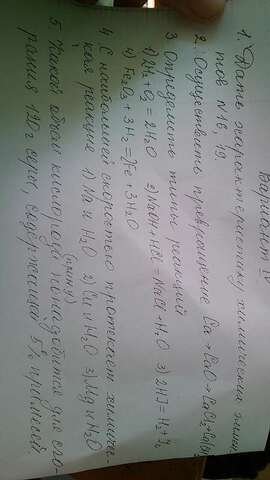 Вариант IV
1. Дать характеристику химических элемен-
тов N 16, 19,
2. Осуществить превращение Ca → CaO → CaCl2
3 Определить типы реакций
2) NaOH + HCl = NaCl + H2O 3) 2HJ = H2 + J2
4) Fe2O3 + 3H2 = 2Fe + 3H2O
4 С наибольшей скоростью протекает химиче-
ская реакция 1) Na и H2O 2) Cu и H2O 3) Mg и H2O
5 Какой объем кислорода (н.у) понадобится для сго-
рания 120 г серы, содержащей 5% примесей